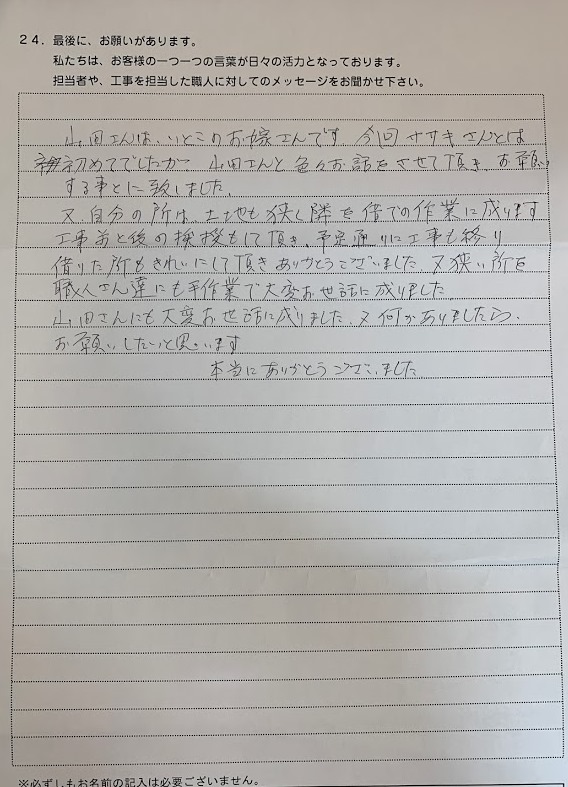 24．最後に、お願いがあります。
私たちは、お客様の一つ一つの言葉が日々の活力となっております。
担当者や、工事を担当した職人に対してのメッセージをお聞かせ下さい。
山田さんは、いとこのお嫁さんです 今回 ササキさんとは
初めてでしたが 山田さんと色々お話をさせて頂き、お願い
する事とに致しました。
又、自分の所は、土地も狭く隣を借での作業に成ります
工事前と後の挨拶もして頂き、予定通りに工事も終り
借りた所もきれいにして頂きありがとうございました、又狭い所を
職人さん達にも手作業で大変お世話に成りました
山田さんにも大変お世話に成りました、又何かありましたら、
お願いしたいと思います
本当にありがとうございました
※必ずしもお名前の記入は必要ございません。